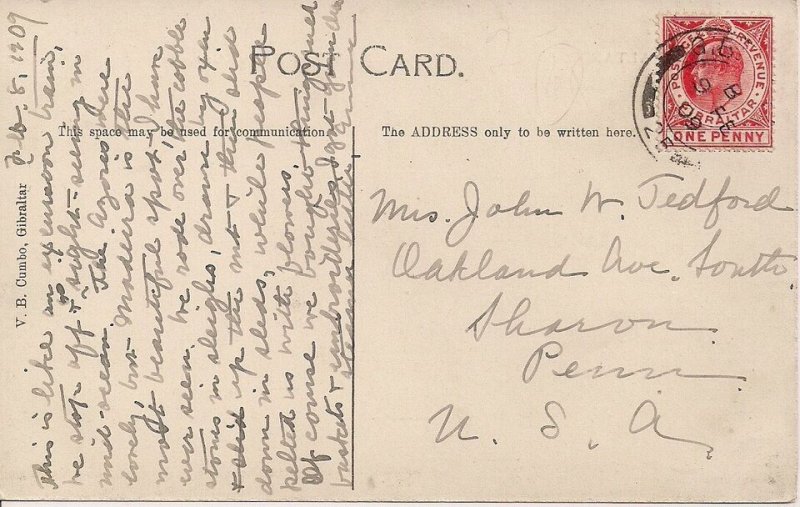 POST CARD.
This space may be used for communication
The ADDRESS only to be written here.
V. B. Cumbo, Gibraltar
POSTAGE & REVENUE
GIBRALTAR
ONE PENNY
Feb. 8, 1909
This is like an excursion train,
we stop off & go sight-seeing
and ocean. The Azores were
lovely, but Madeira is the
most beautiful spot I have
ever seen. We rode over the cobble
stones in sleighs, drawn by oxen
& slid up the mt & then slid
down in sleds, while people
pelted us with flowers.
Of course we bought
baskets & embroideries.
Mrs. John W. Tedford
Oakland Ave. South
Sharon
Penn
U. S. A